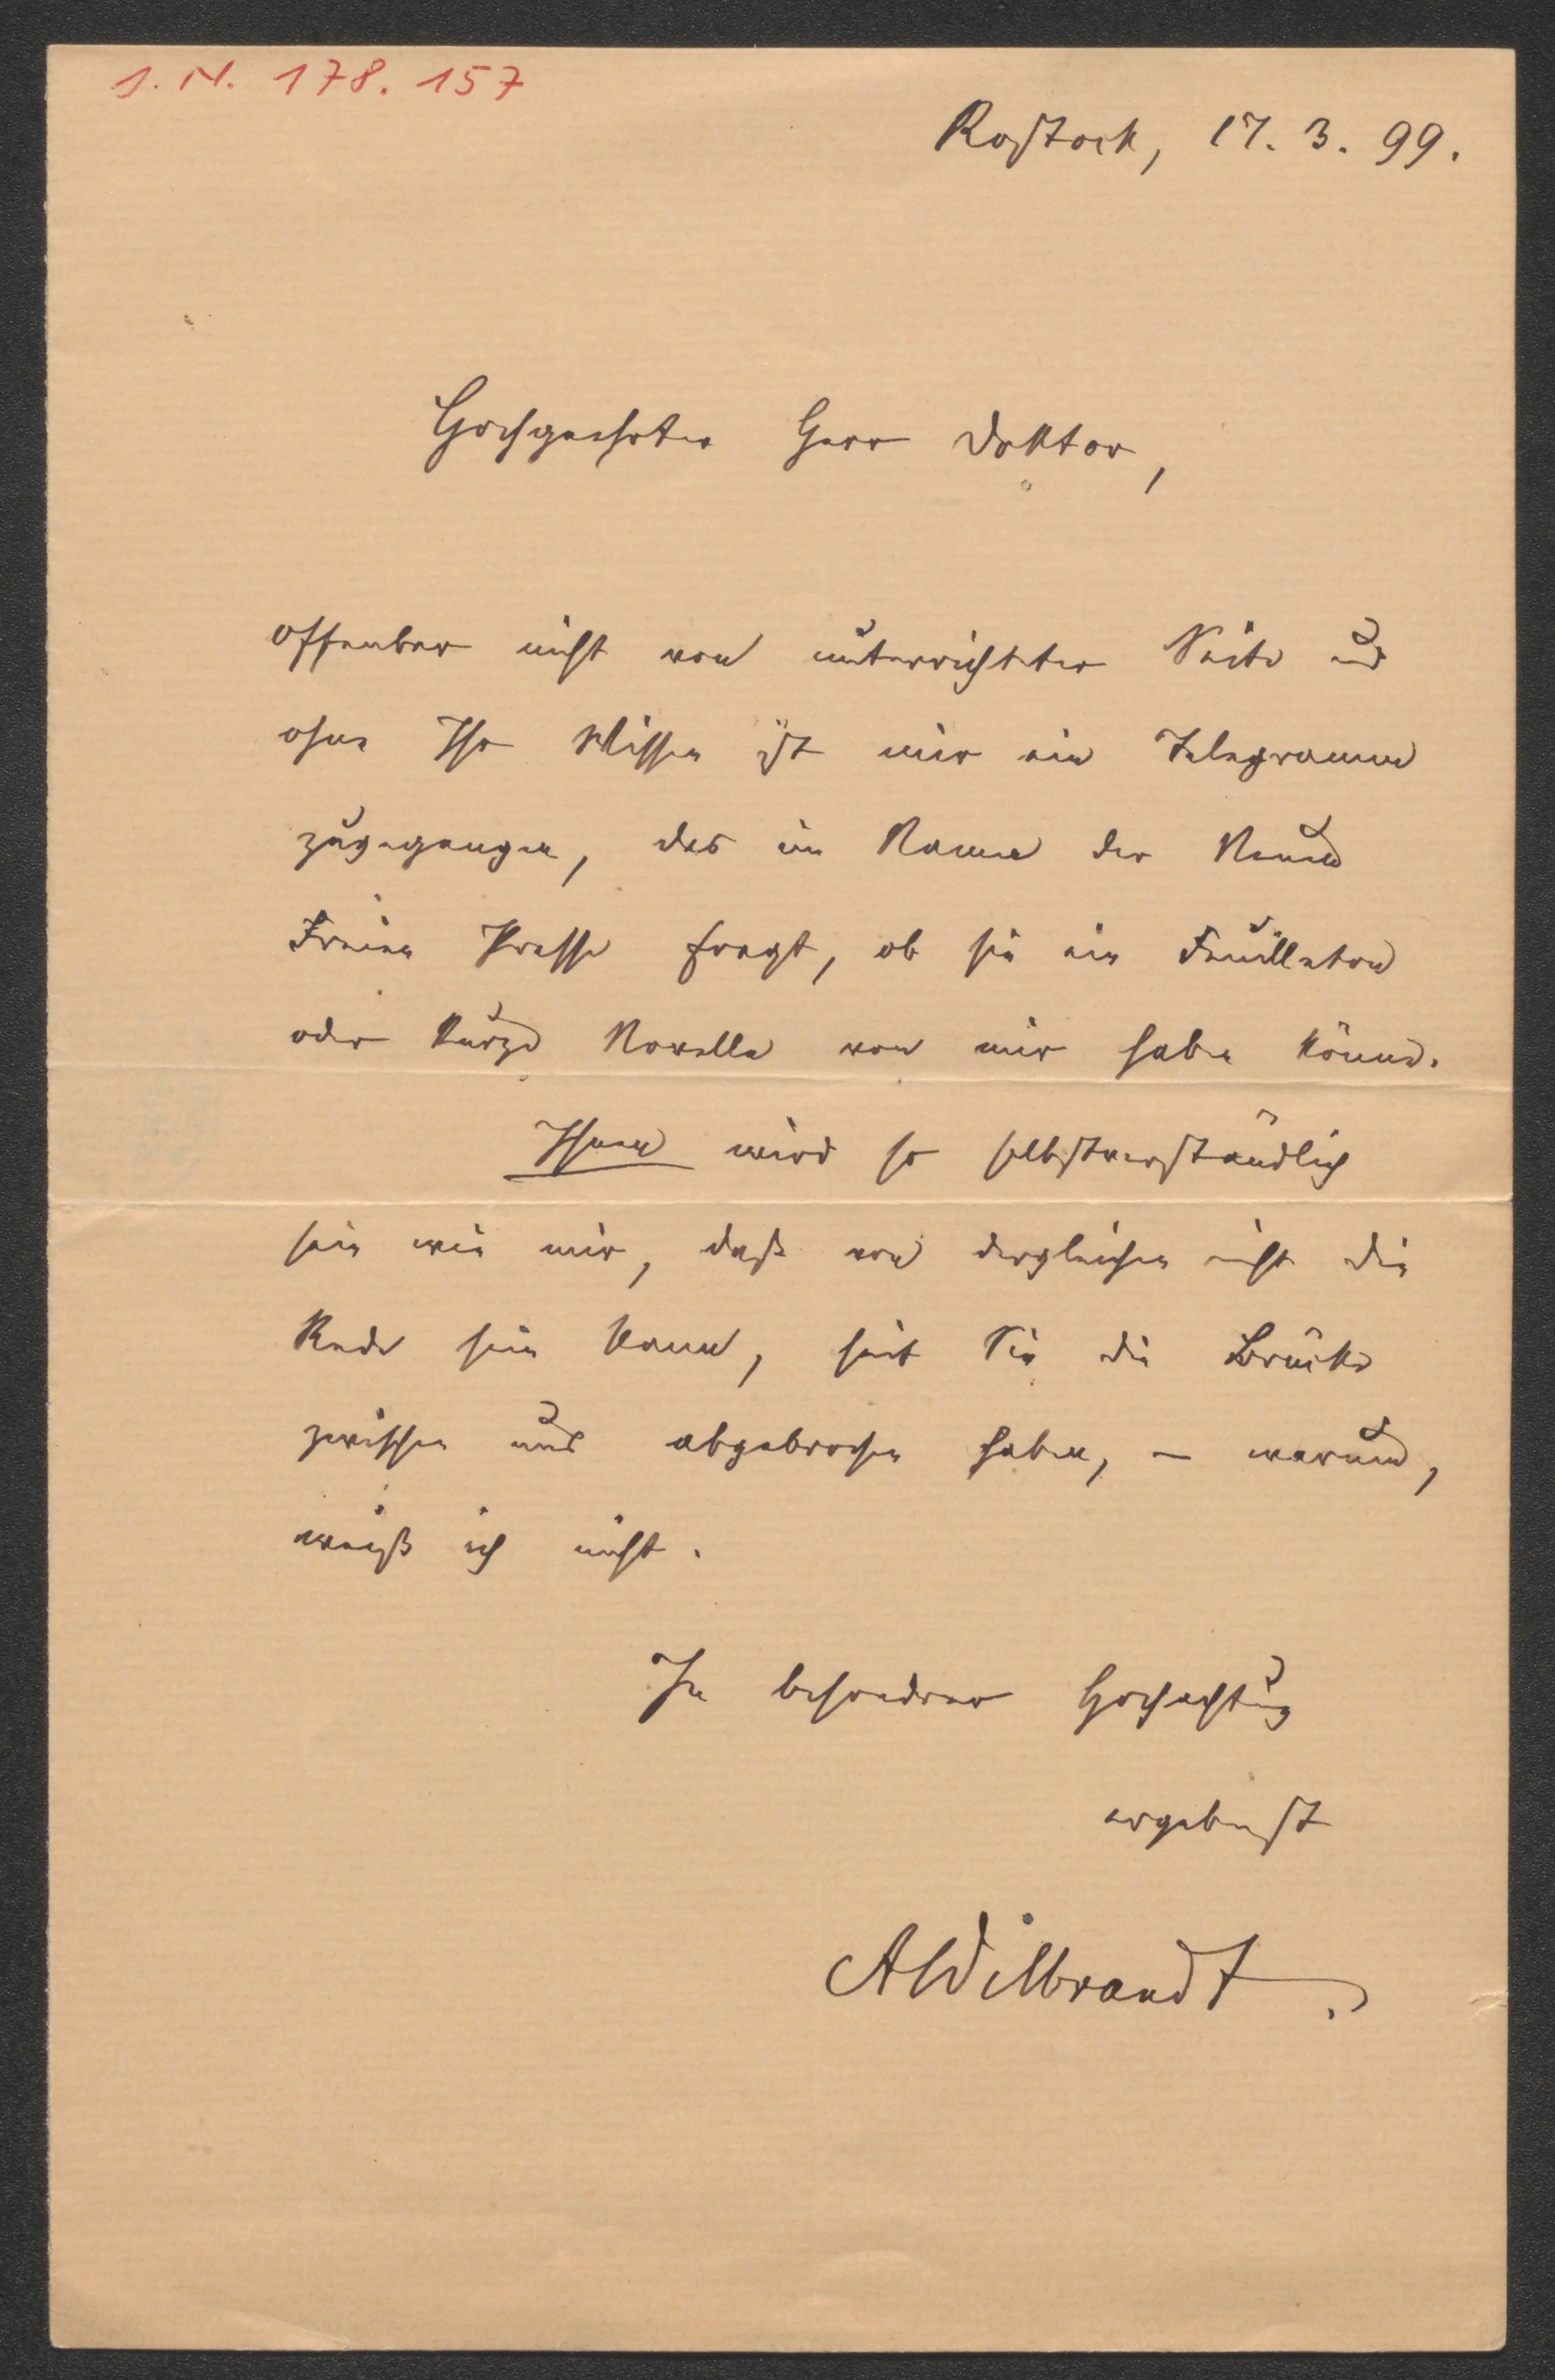 I. N. 178.157
Rostock, 17. 3. 99.
Hochgeehrter Herr Doktor,
offenbar nicht von unterrichteter Seite und
ohne Ihr Wissen ist mir ein Telegramm
zugegangen, das im Namen der Neuen
Freien Presse fragt, ob sie ein Feuilleton
oder kurze Novelle von mir haben könne.
Ihnen wird so selbstverständlich
sein wie mir, daß von dergleichen nicht die
Rede sein kann, seit Sie die Brücke
zwischen uns abgebrochen haben, – warum,
weiß ich nicht.
In besondrer Hochachtung
ergebenst
AWilbrandt